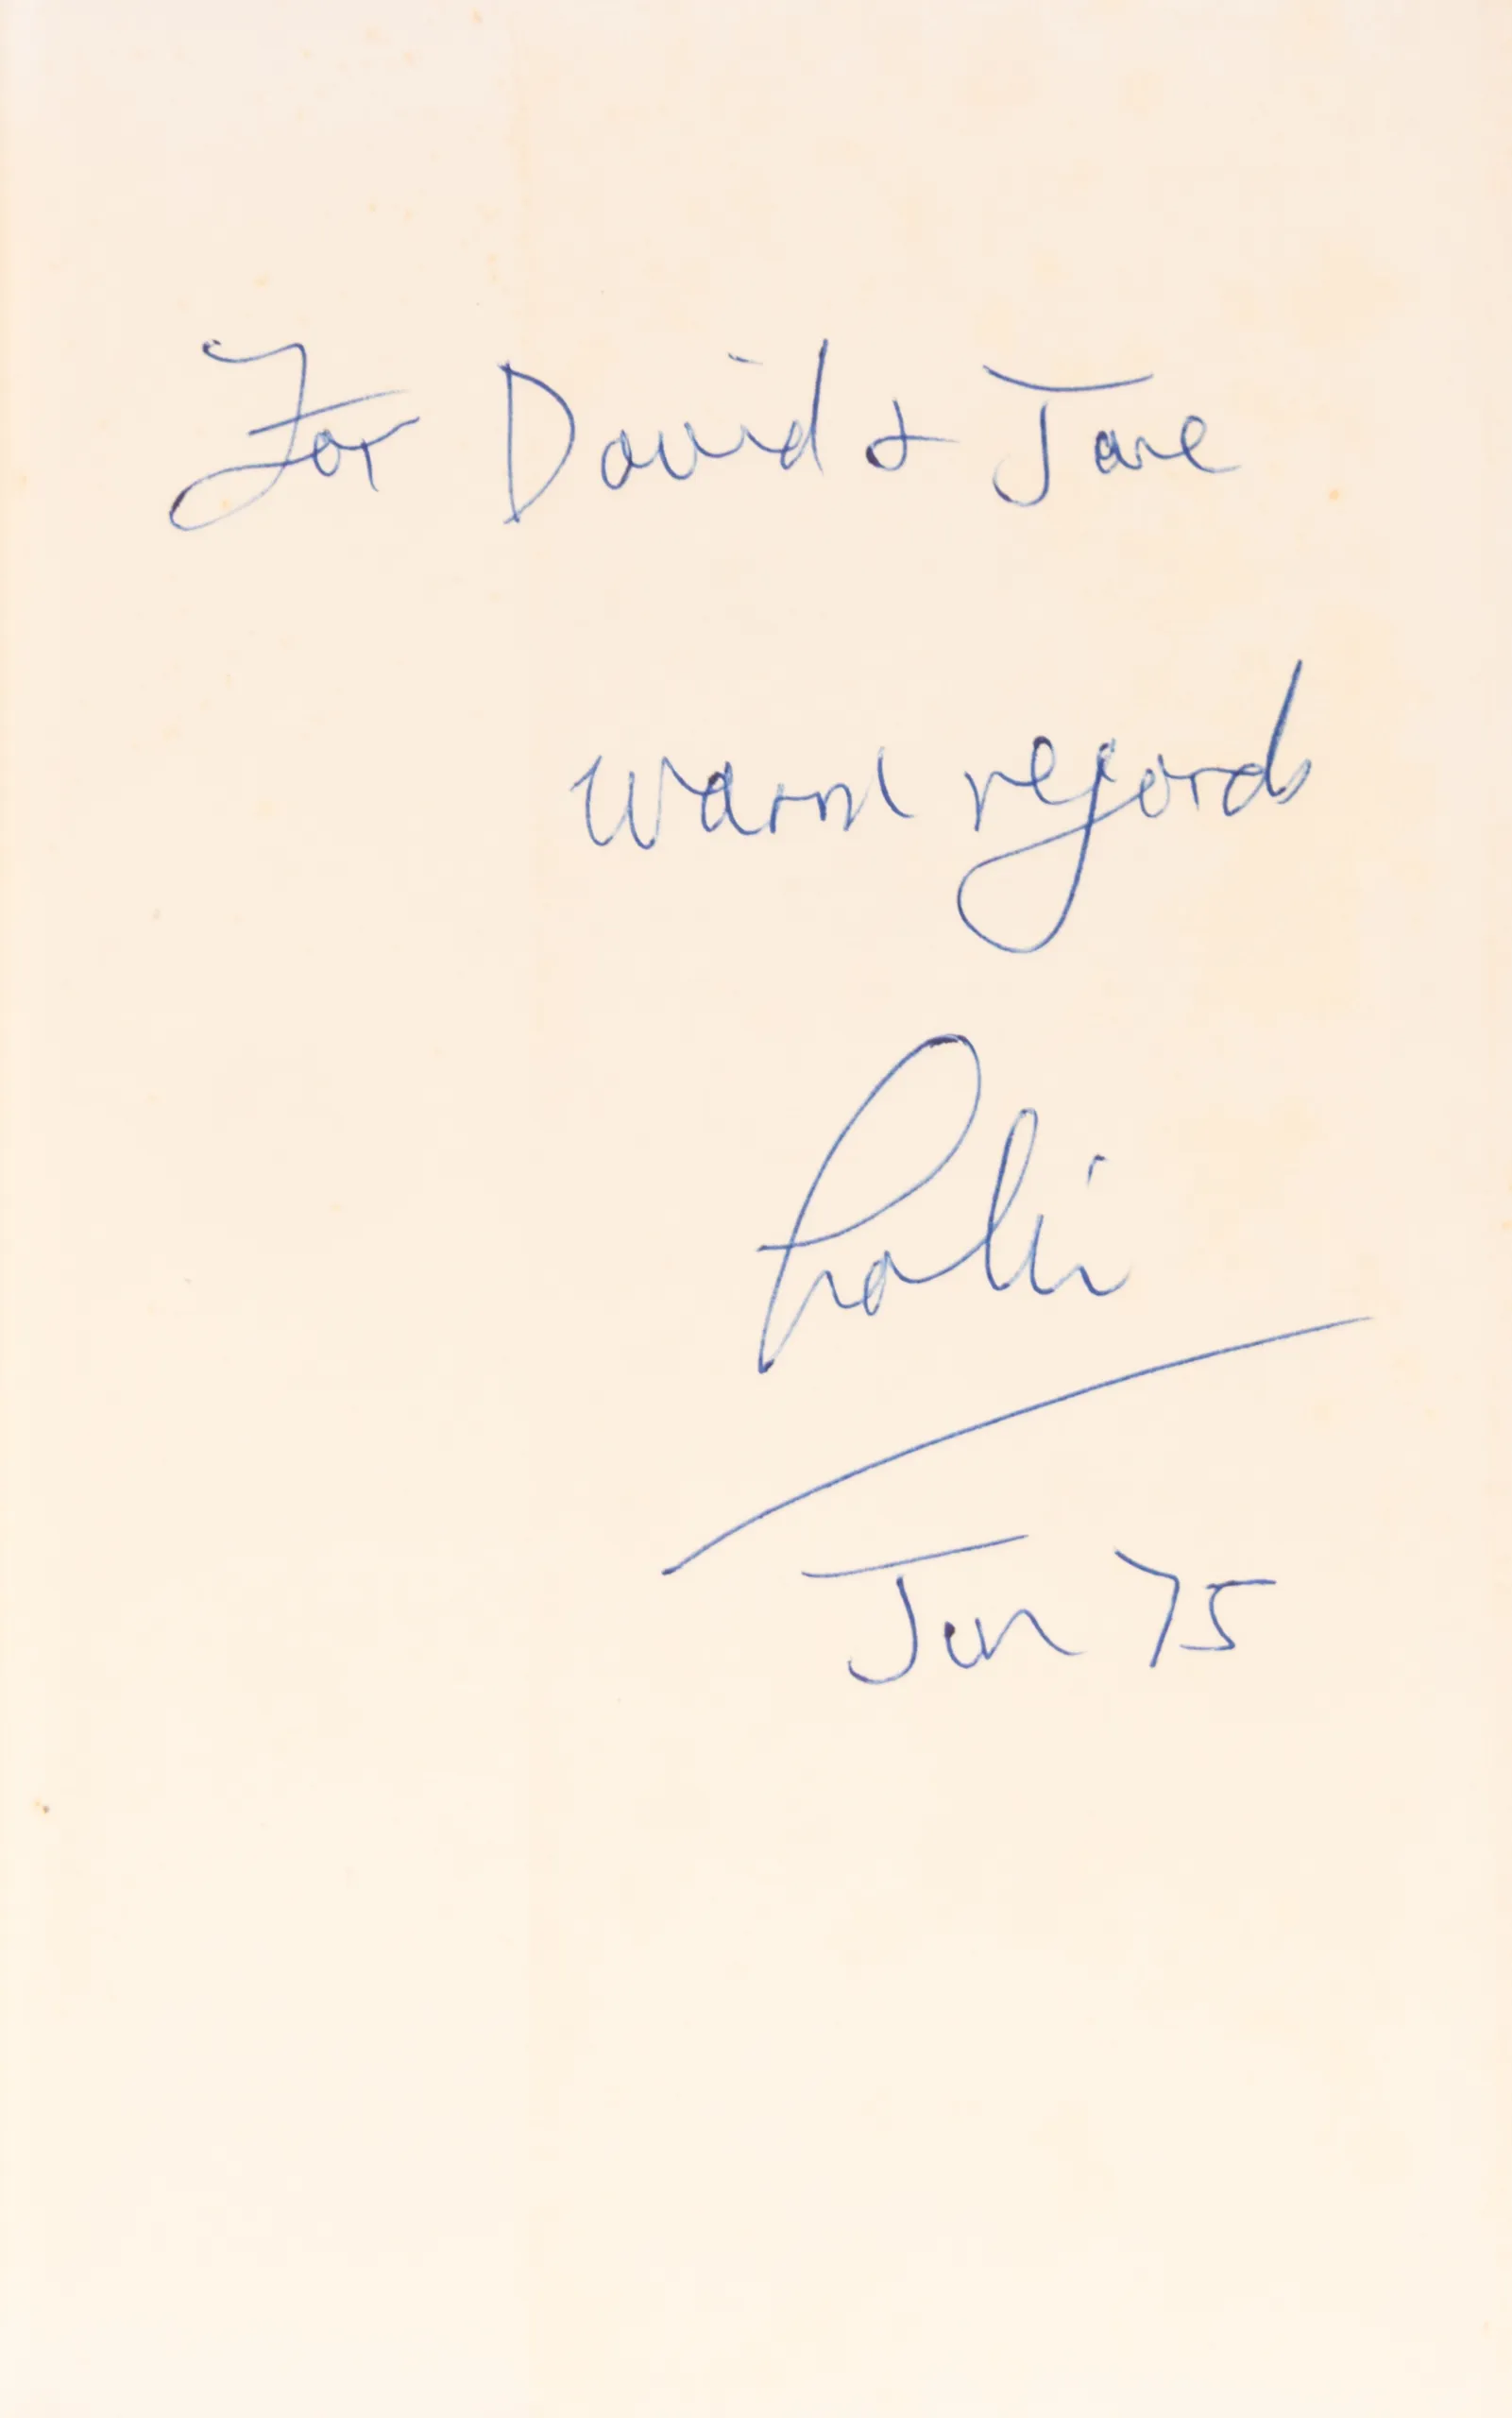 For David & Jane
warm regards
Jun 75